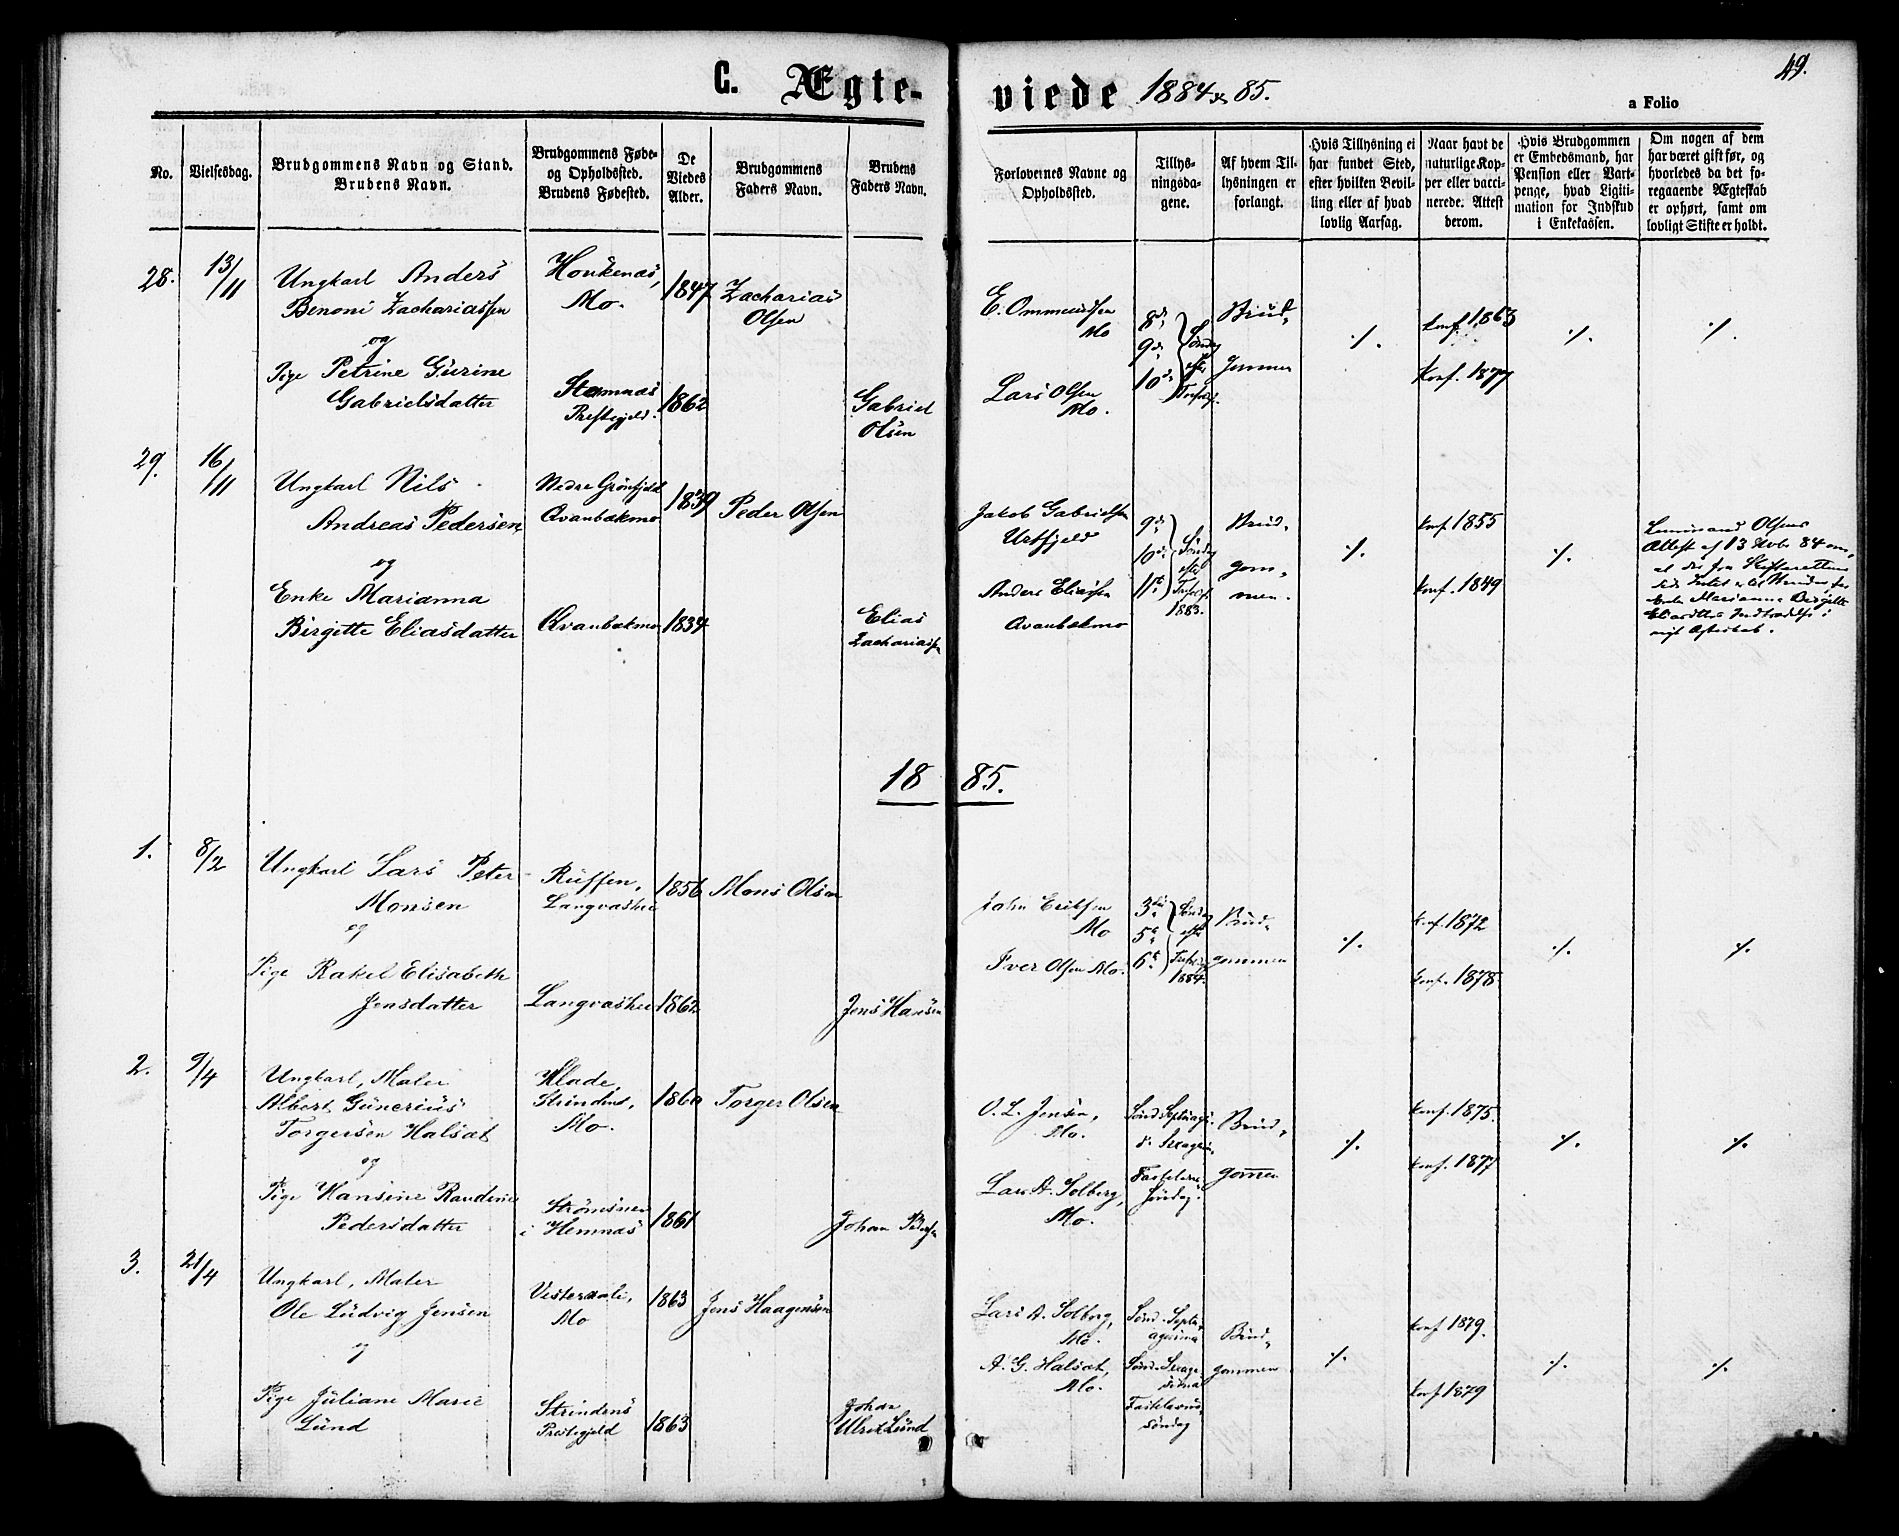 C. Ægte-
viede 1884 & 85.
49.
a Folio
No.
Vielsesdag.
Brudgommens Navn og Stand.
Brudens Navn.
Brudgommens Føde-
og Opholdssted.
Brudens Fødested.
De
Viedes
Alder.
Brudgommens
Faders Navn.
Brudens
Faders Navn.
Forlovernes Navne og
Opholdssted.
Tillys-
ningsda-
gene.
Af hvem Til-
lysningen er
forlangt.
Hvis Tillysning ei
har fundet Sted,
efter hvilken Bevil-
ling eller af hvad
lovlig Aarsag.
Naar havt de
naturlige Kop-
per eller vacci-
nerede. Attest
derom.
Hvis Brudgommen
er Embedsmand, har
Pension eller Vart-
penge, hvad Ligiti-
mation for Indskud
i Enkekassen.
Om nogen af dem
har været gift før, og
hvorledes da det fo-
regaaende Ægteskab
er ophørt, samt om
lovligt Skifte er holdt.
28.
13/11
Ungkarl Anders
Benoni Zachariassen
og
Pige Petrine Gurine
Gabrielsdatter
Mo.
Prestegjeld.
1847
1862
Zacharias
Olsen
Gabriel
Olsen
E. Ommundsen
Mo
Lars Olsen
Mo.
8de
9de
10de
Søndag
eft.
Brud-
gommen
%.
konf. 1863
Konf. 1877
%.
%.
29.
16/11
Ungkarl Nils
Andreas Pedersen
og
Enke Marianna
Birgitte Eliasdatter
Nedre Grønfjeld
Qvanbækmo
Qvanbækmo
1839
1834
Peder Olsen
Elias
Zachariassen
Jakob Gabrielsen
Urtfjeld
Anders Eliassen
Qvanbækmo
9de
10de
11te
Søndag
efter
1883.
Brud-
gom-
men.
%.
konf. 1855
konf. 1849
%.
Lensmand Olsens
Attest af 13 Novbr 84 om,
Enke Marianne Birgitte
1885.
1.
8/2
Ungkarl Lars Peter
Monsen
og
Pige Rakel Elisabeth
Jensdatter
Ruffen,
Langvashei
Langvashei
1856
1862
Mons Olsen
Jens Hansen
John Eriksen
Mo
Iver Olsen Mo.
3die
5te
6te
Søndag
eft.
1884.
Brud-
gommen
%.
konf. 1872
konf. 1878
%.
%.
2.
9/4
Ungkarl, Maler
Albert Gunerius
Torgersen Halsæt
og
Pige Hansine Randine
Pedersdatter
Hlade
Strinden,
Mo.
i Hemnæs
1860
1861
Torger Olsen
Johan Peders
O. L. Jensen,
Mo.
Lars A. Solberg,
Mo.
Fastelavns
Søndag.
Brud-
gommen
%.
konf. 1875.
konf. 1877
%.
%.
3.
21/4
Ungkarl, Maler
Ole Ludvig Jensen
og
Pige Juliane Marie
Lund
Vesteraali,
Mo
Strindens
Prestegjeld
1863
1863
Jens Haagensen
Johan
Ulrik Lund
Lars A. Solberg,
Mo.
A. G. Halsæt,
Mo.
Sønd. Septu-
agesima
Sønd. Sexage-
sima
Fastelavns
søndag
Brud-
gommen
%.
konf 1879.
konf 1879
%.
%.